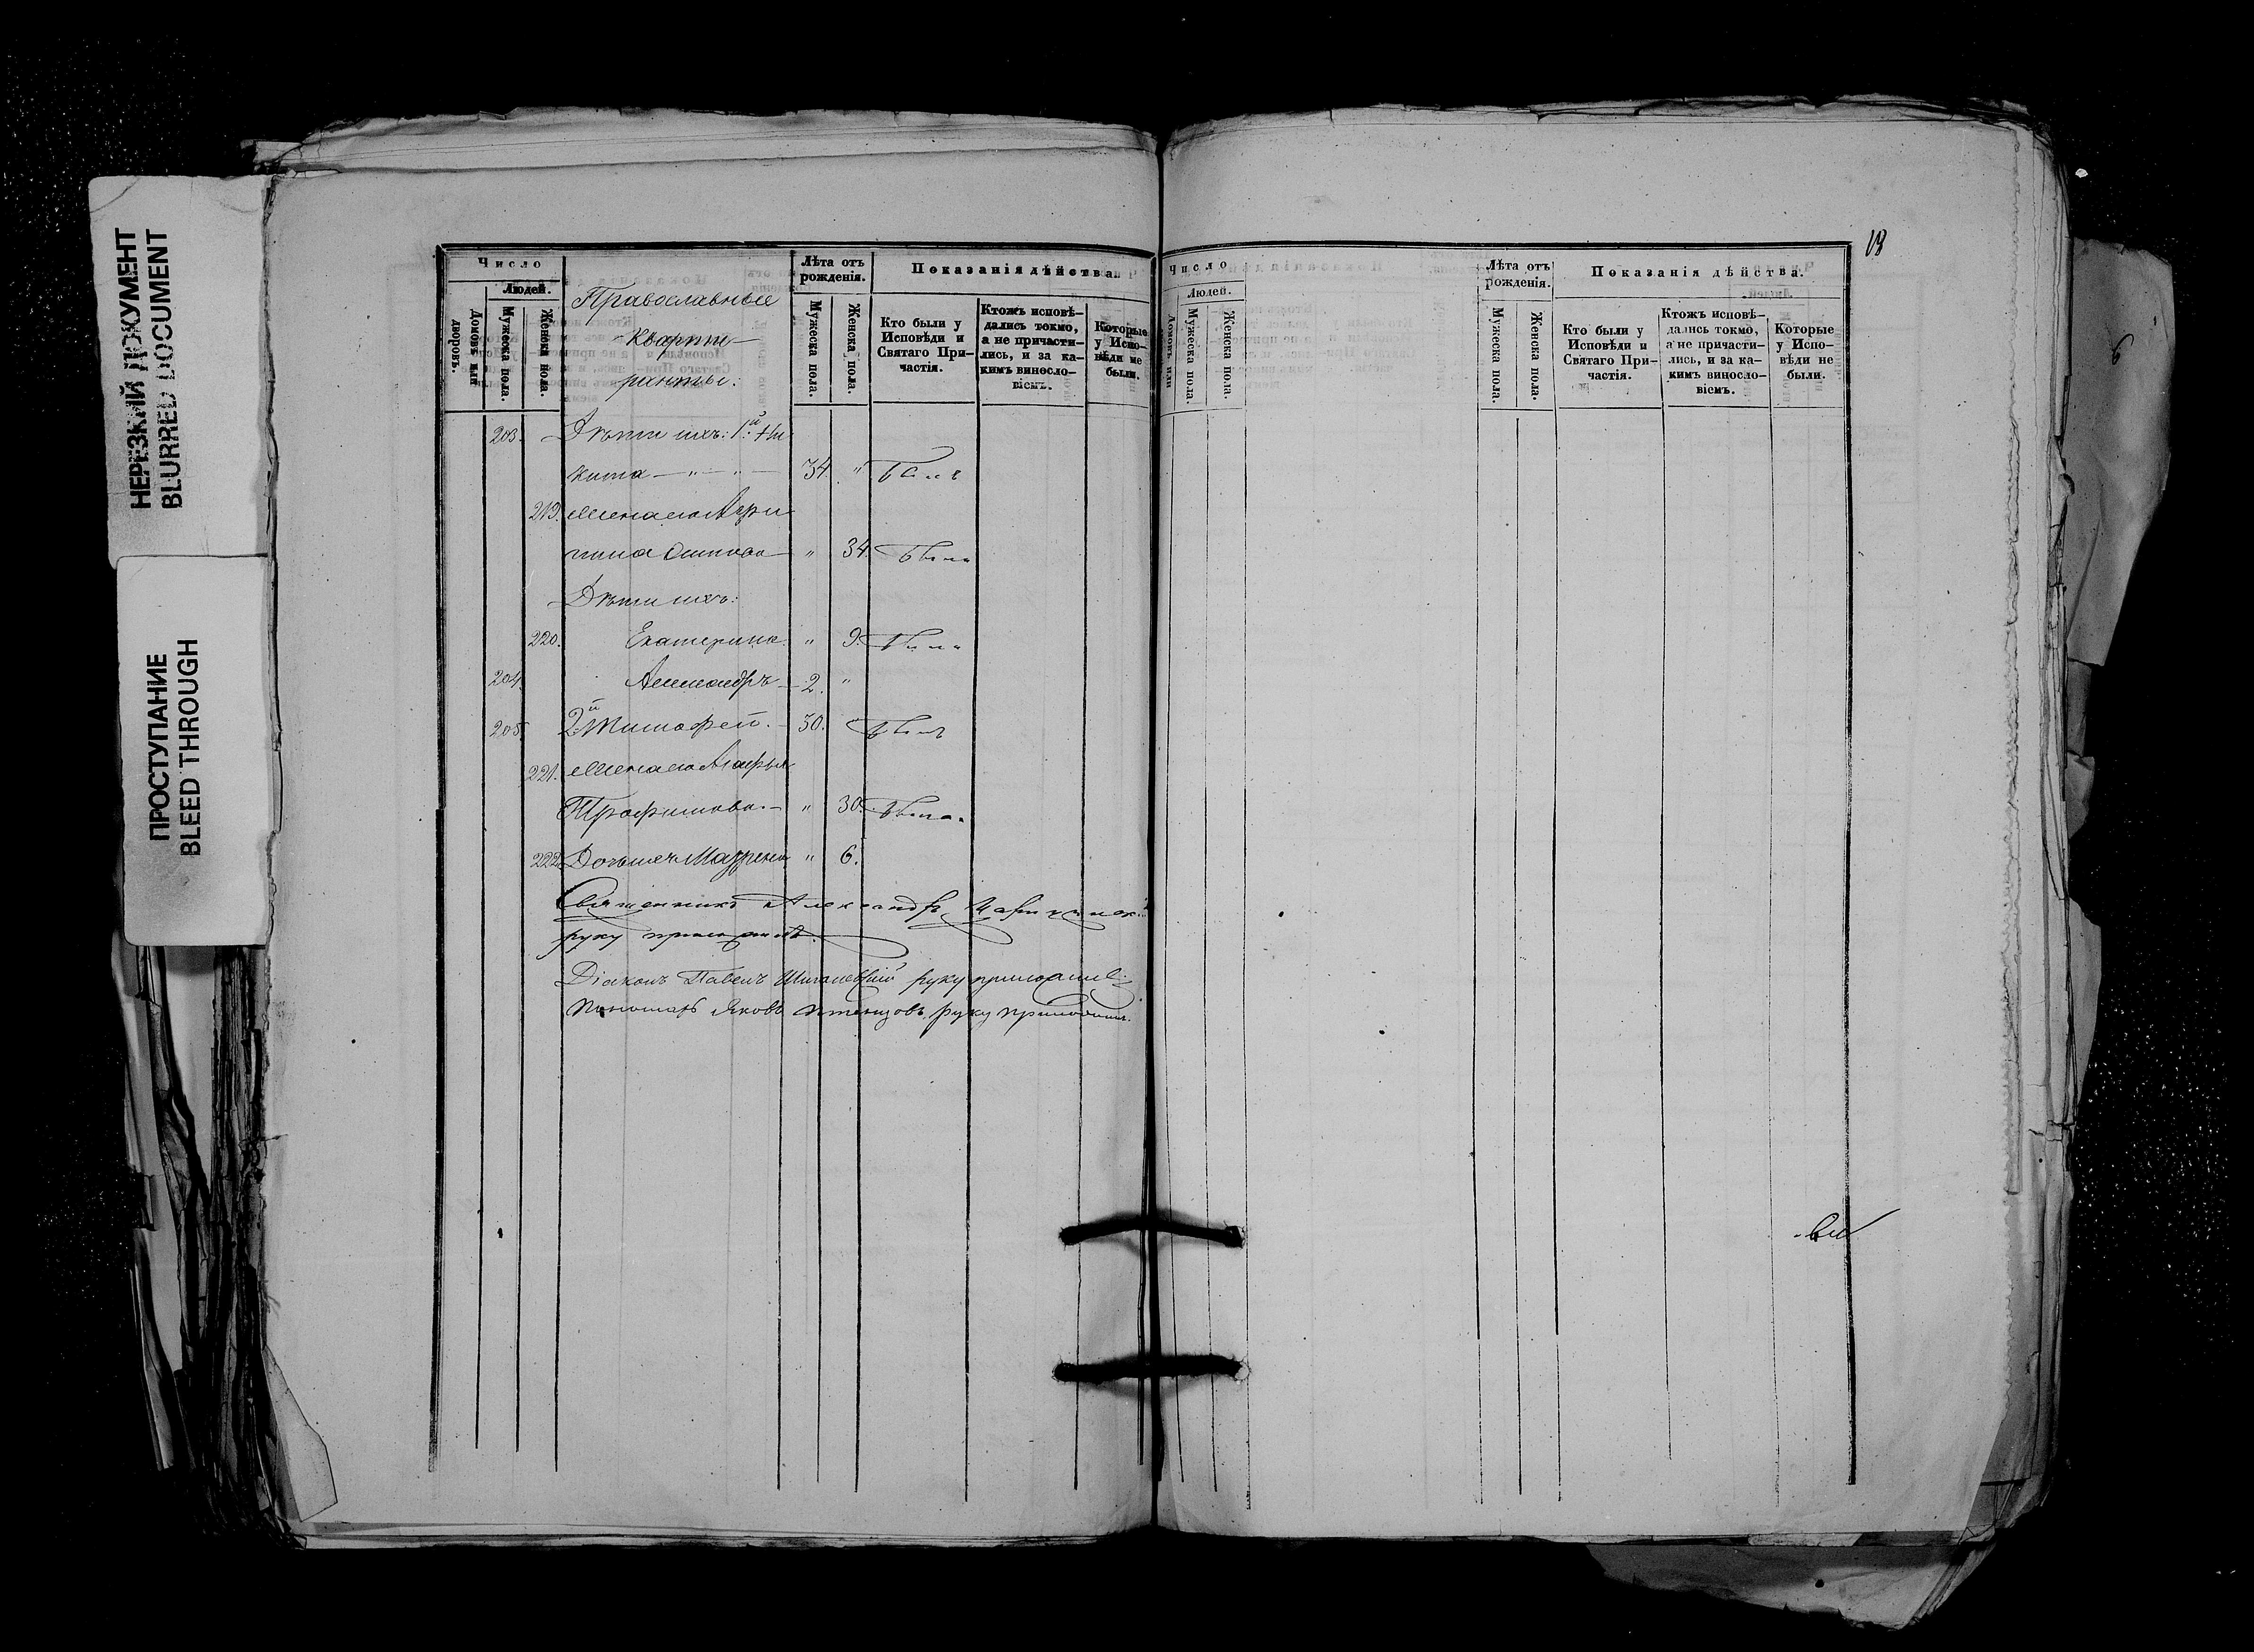 НЕРЕЗКИЙ ДОКУМЕНТ
BLURRED DOCUMENT
ПРОСТУПАНИЕ
BLEED THROUGH
Число
Людей.
Домовъ или дворовъ.
Мужеска пола.
Женска пола.
Православные
Кварти-
ранты.
Лѣта отъ рожденія.
Мужеска пола.
Женска пола.
Показанія дѣйства.
Кто были у Исповѣди и Святаго При-частія.
Ктожъ исповѣ-дались токмо, а не причасти-лись, и за ка-кимъ винословіемъ.
Которые у Испо-вѣди не были.
203. Дѣти ихъ: 1й Ни-
кита — " — " — 34. " Былъ
219. Жена его Агри
пина — " 34. Была
Дѣти ихъ:
220. Екатерина " 9. Была
204. Александръ — 2. "
205. 2й Тимофей. — 30. Былъ
221. Жена его Агафья
Трофимова. — " 30. Была
222. Дочь ихъ " 6.
Священникъ Александръ
руку приложилъ.
Діаконъ Павелъ руку приложилъ.
Пономарь Яковъ руку приложилъ.
13
Число
Людей.
Домовъ или
Мужеска пола.
Женска пола.
Лѣта отъ рожденія.
Мужеска пола.
Женска пола.
Показанія дѣйства.
Кто были у Исповѣди и Святаго При-частія.
Ктожъ исповѣ-дались токмо, а не причасти-лись, и за ка-кимъ винословіемъ.
Которые у Испо-вѣди не были.